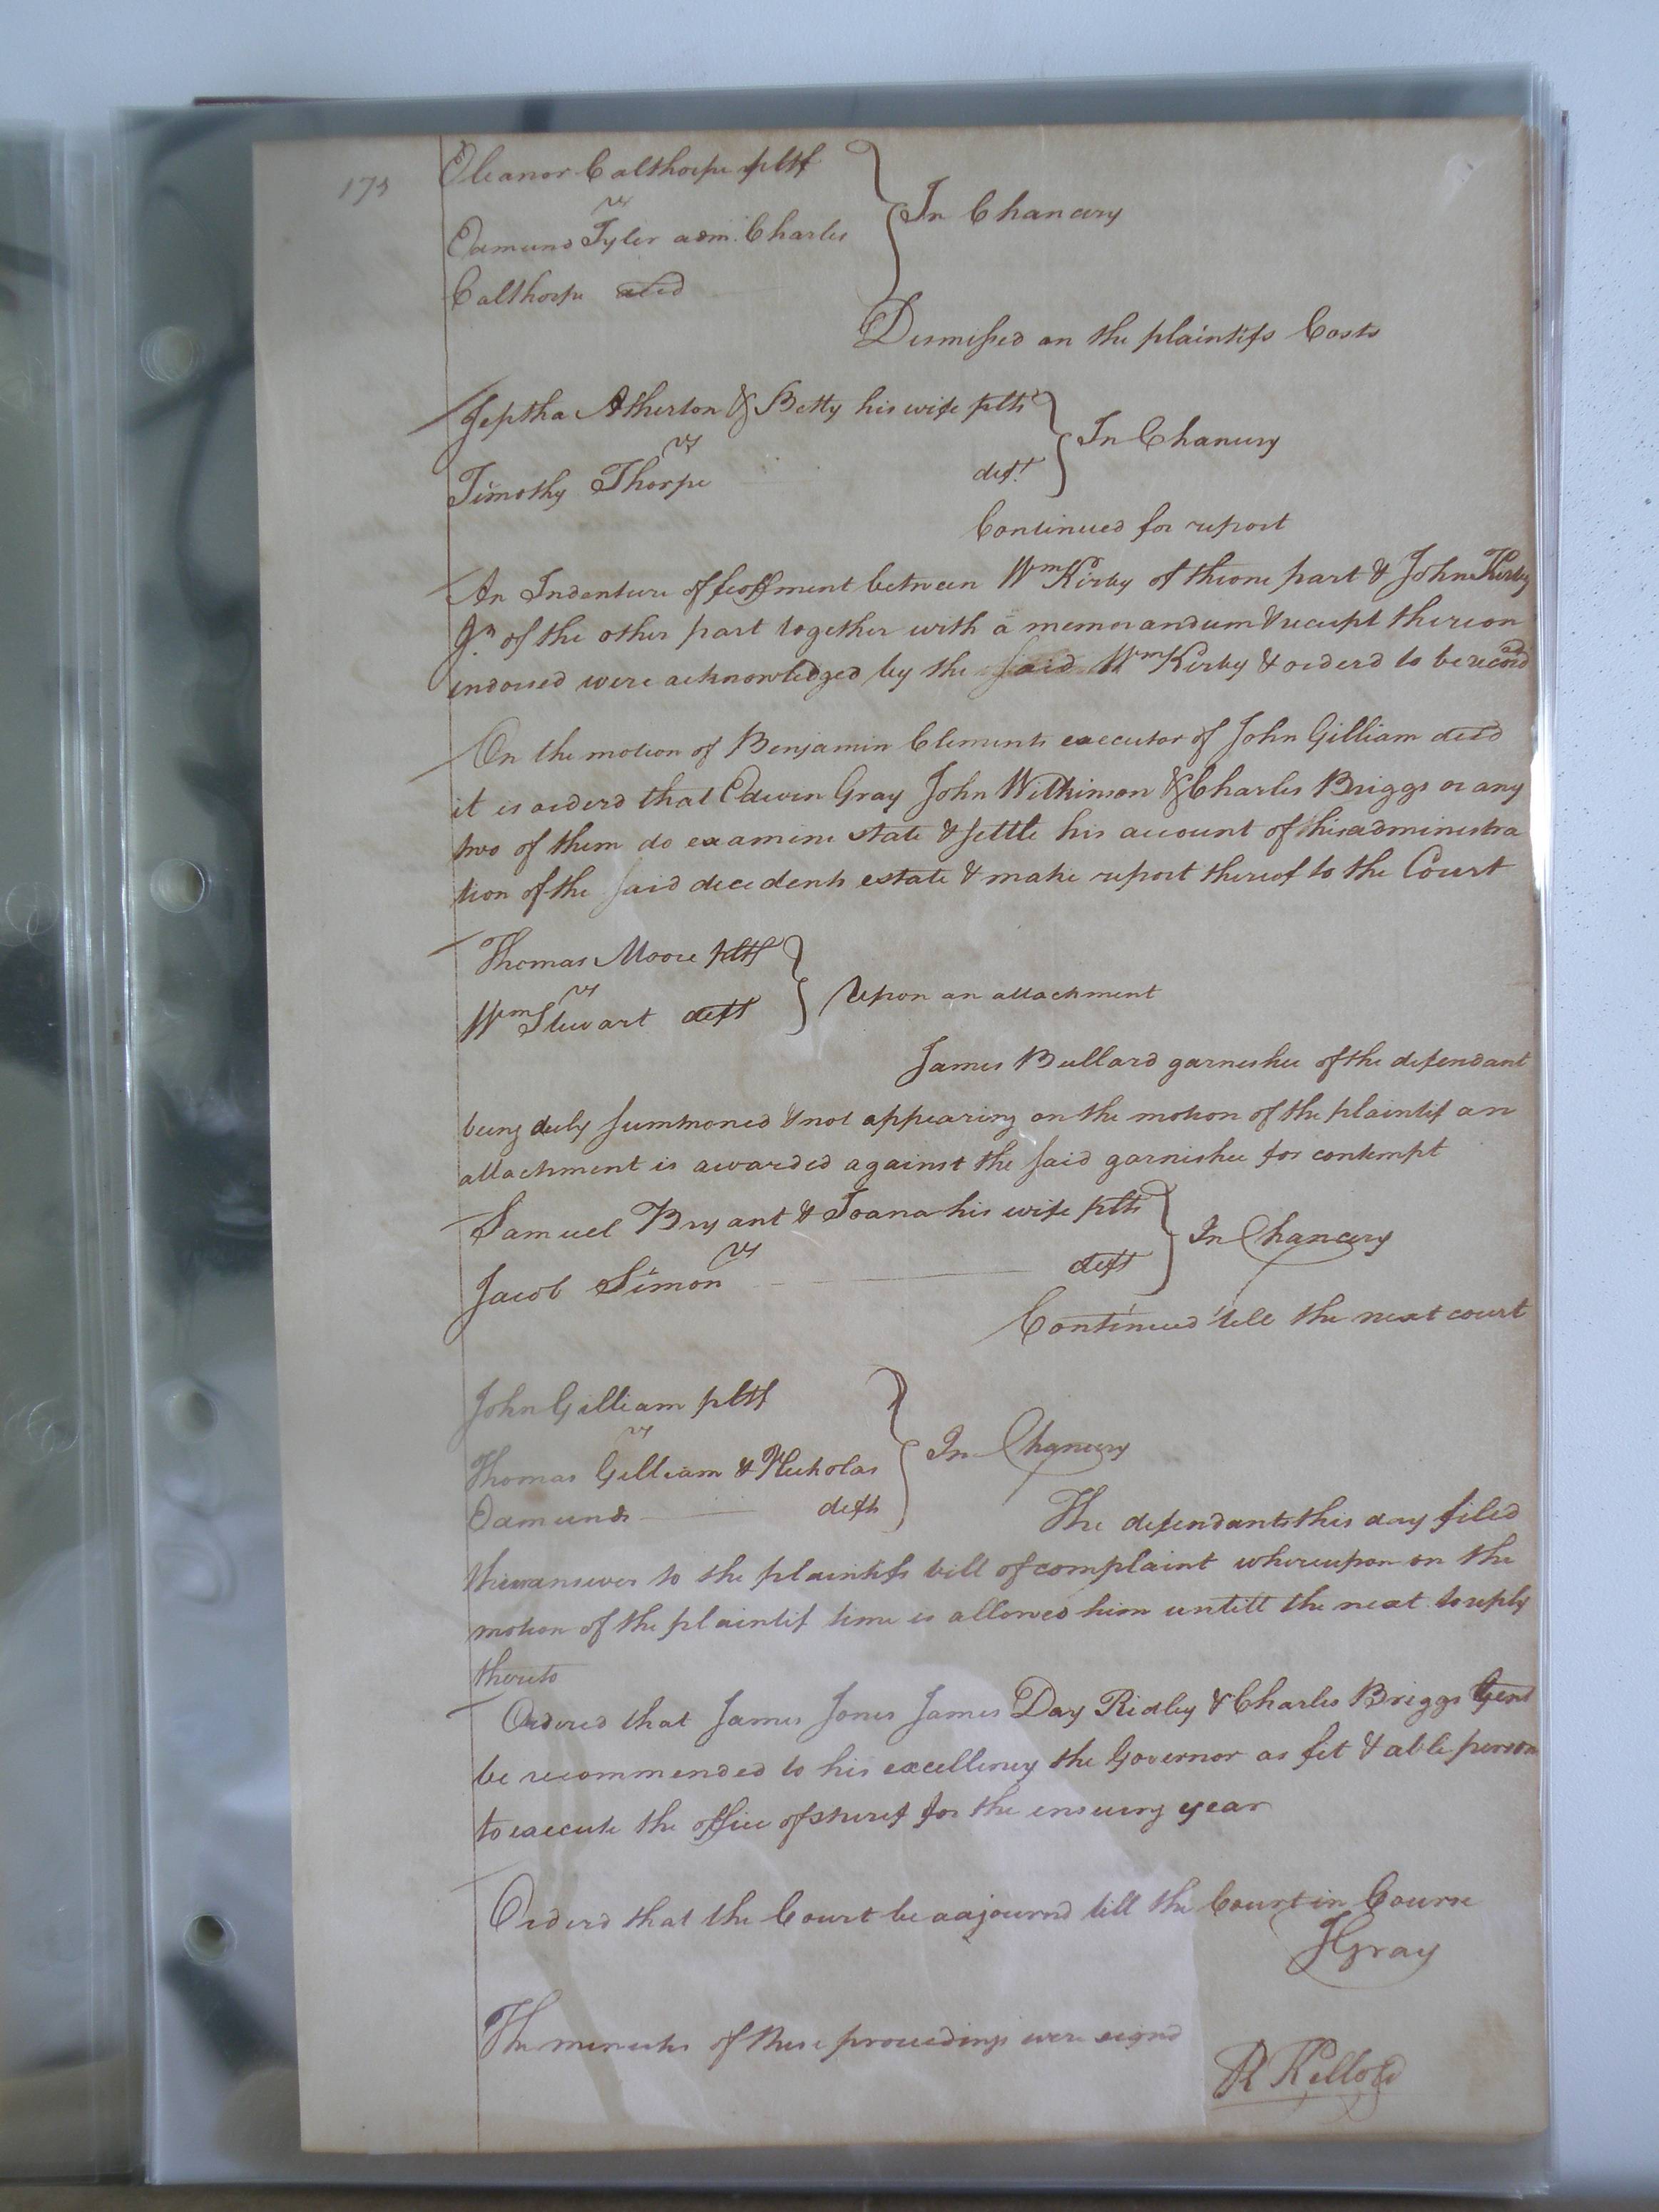 173
Eleanor Calthorpe pltf
vs
Edmund Tyler adm. Charles
Calthorpe decd
In Chancery
Dismissed on the plaintifs Costs
Jeptha Atherton & Betty his wife plts
vs
Timothy Thorpe deft.
In Chancery
Continued for report
An Indenture of feoffment between Wm Kirby of the one part & John Kirby
Jr. of the other part together with a memorandum & receipt thereon
indorsed were acknowledged by the said Wm Kirby & orderd to be recorded
On the motion of Benjamin Clements executor of John Gilliam decd
it is orderd that Edwin Gray John Wilkinson & Charles Briggs or any
two of them do examine state & settle his account of his administra
tion of the said decedents estate & make report thereof to the Court
Thomas Moore pltf
vs
Wm Stewart deft
Upon an attachment
James Bullard garnishee of the defendant
being duly summoned & not appearing on the motion of the plaintif an
attachment is awarded against the said garnishee for contempt
Samuel Bryant & Joana his wife plts
vs
Jacob Simon deft
In Chancery
Continued till the next court
John Gilliam pltf
vs
Thomas Gilliam & Nicholas
Edmunds defts
In Chancery
The defendants this day filed
their answer to the plaintifs bill of complaint whereupon on the
motion of the plaintif time is allowed him untill the next to reply
thereto
Ordered that James Jones James Day Ridley & Charles Briggs Gent
be recommended to his excellency the Governor as fit & able person
to execute the office of sherif for the ensuing year
Orderd that the Court be adjournd till the Court in Course
JGray
The minutes of these proceedings were signd
R Kello Cl